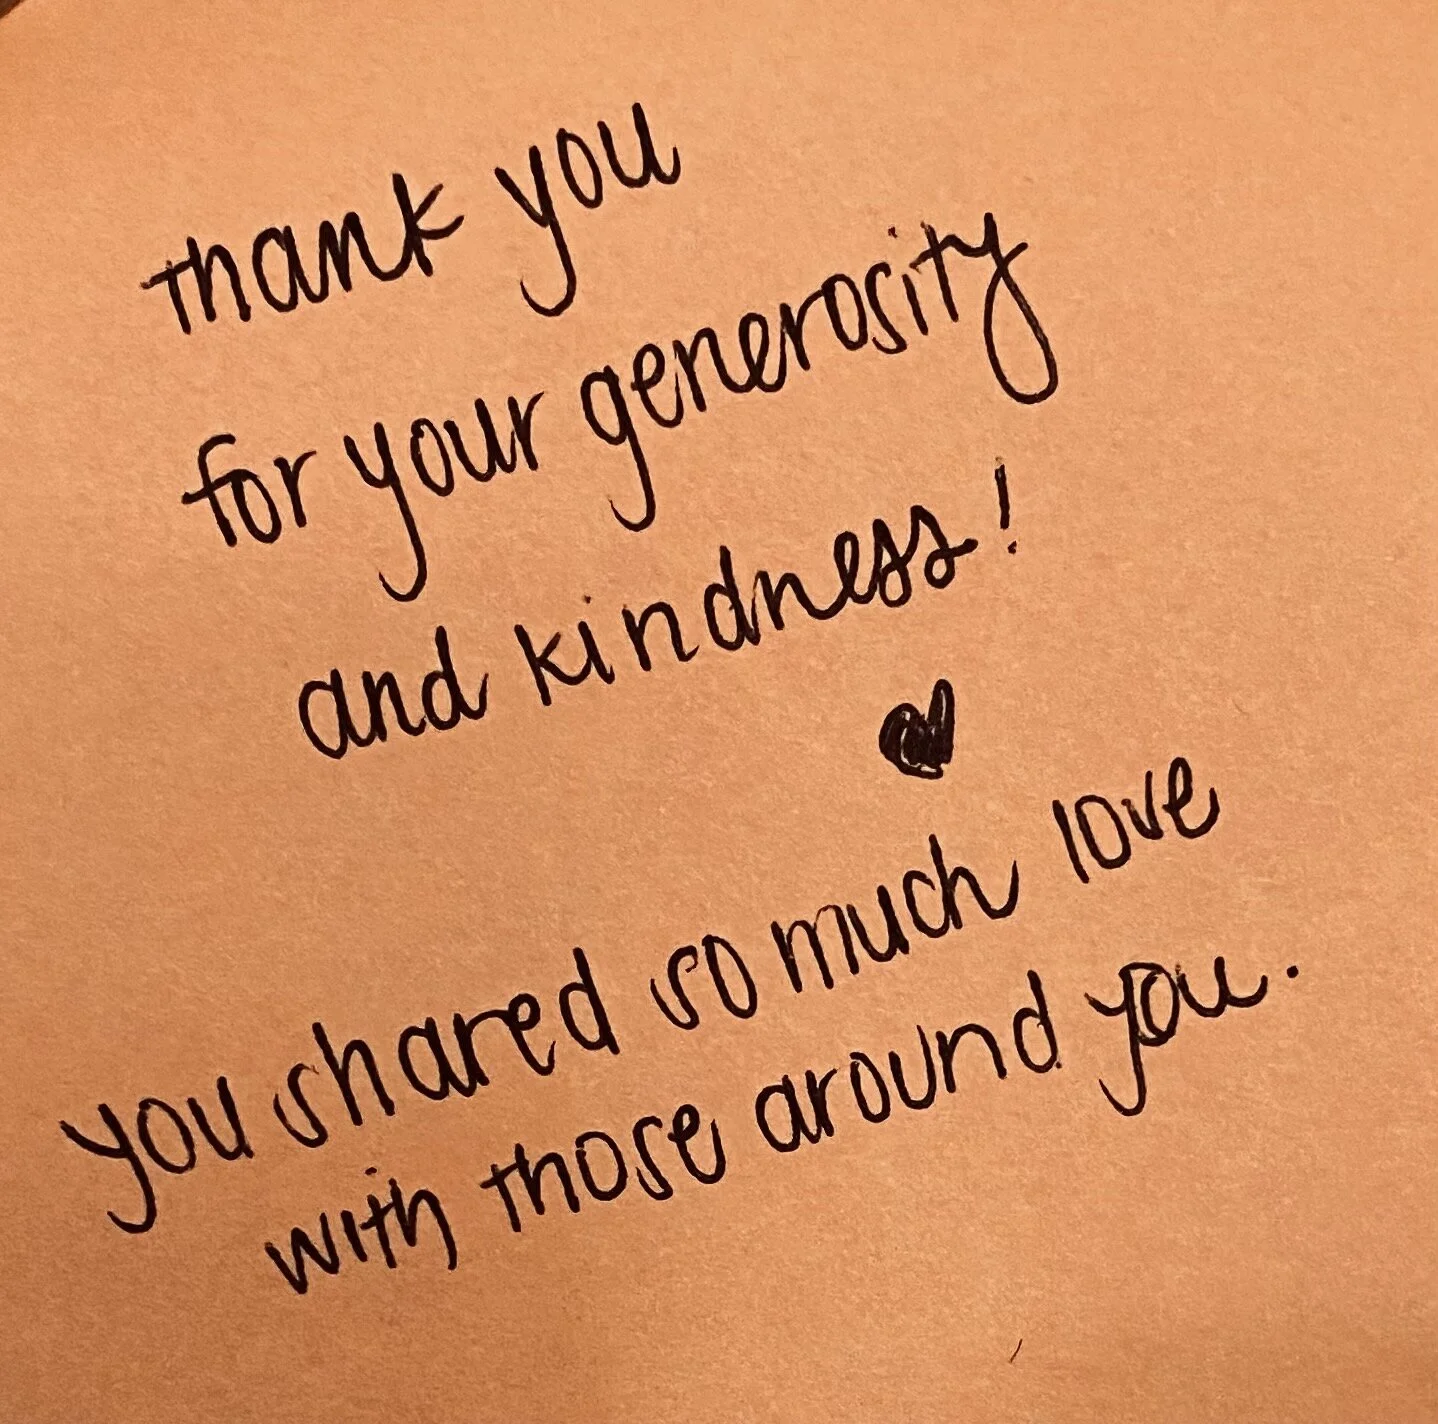 thank you
for your generosity
and kindness!
you shared so much love
with those around you.